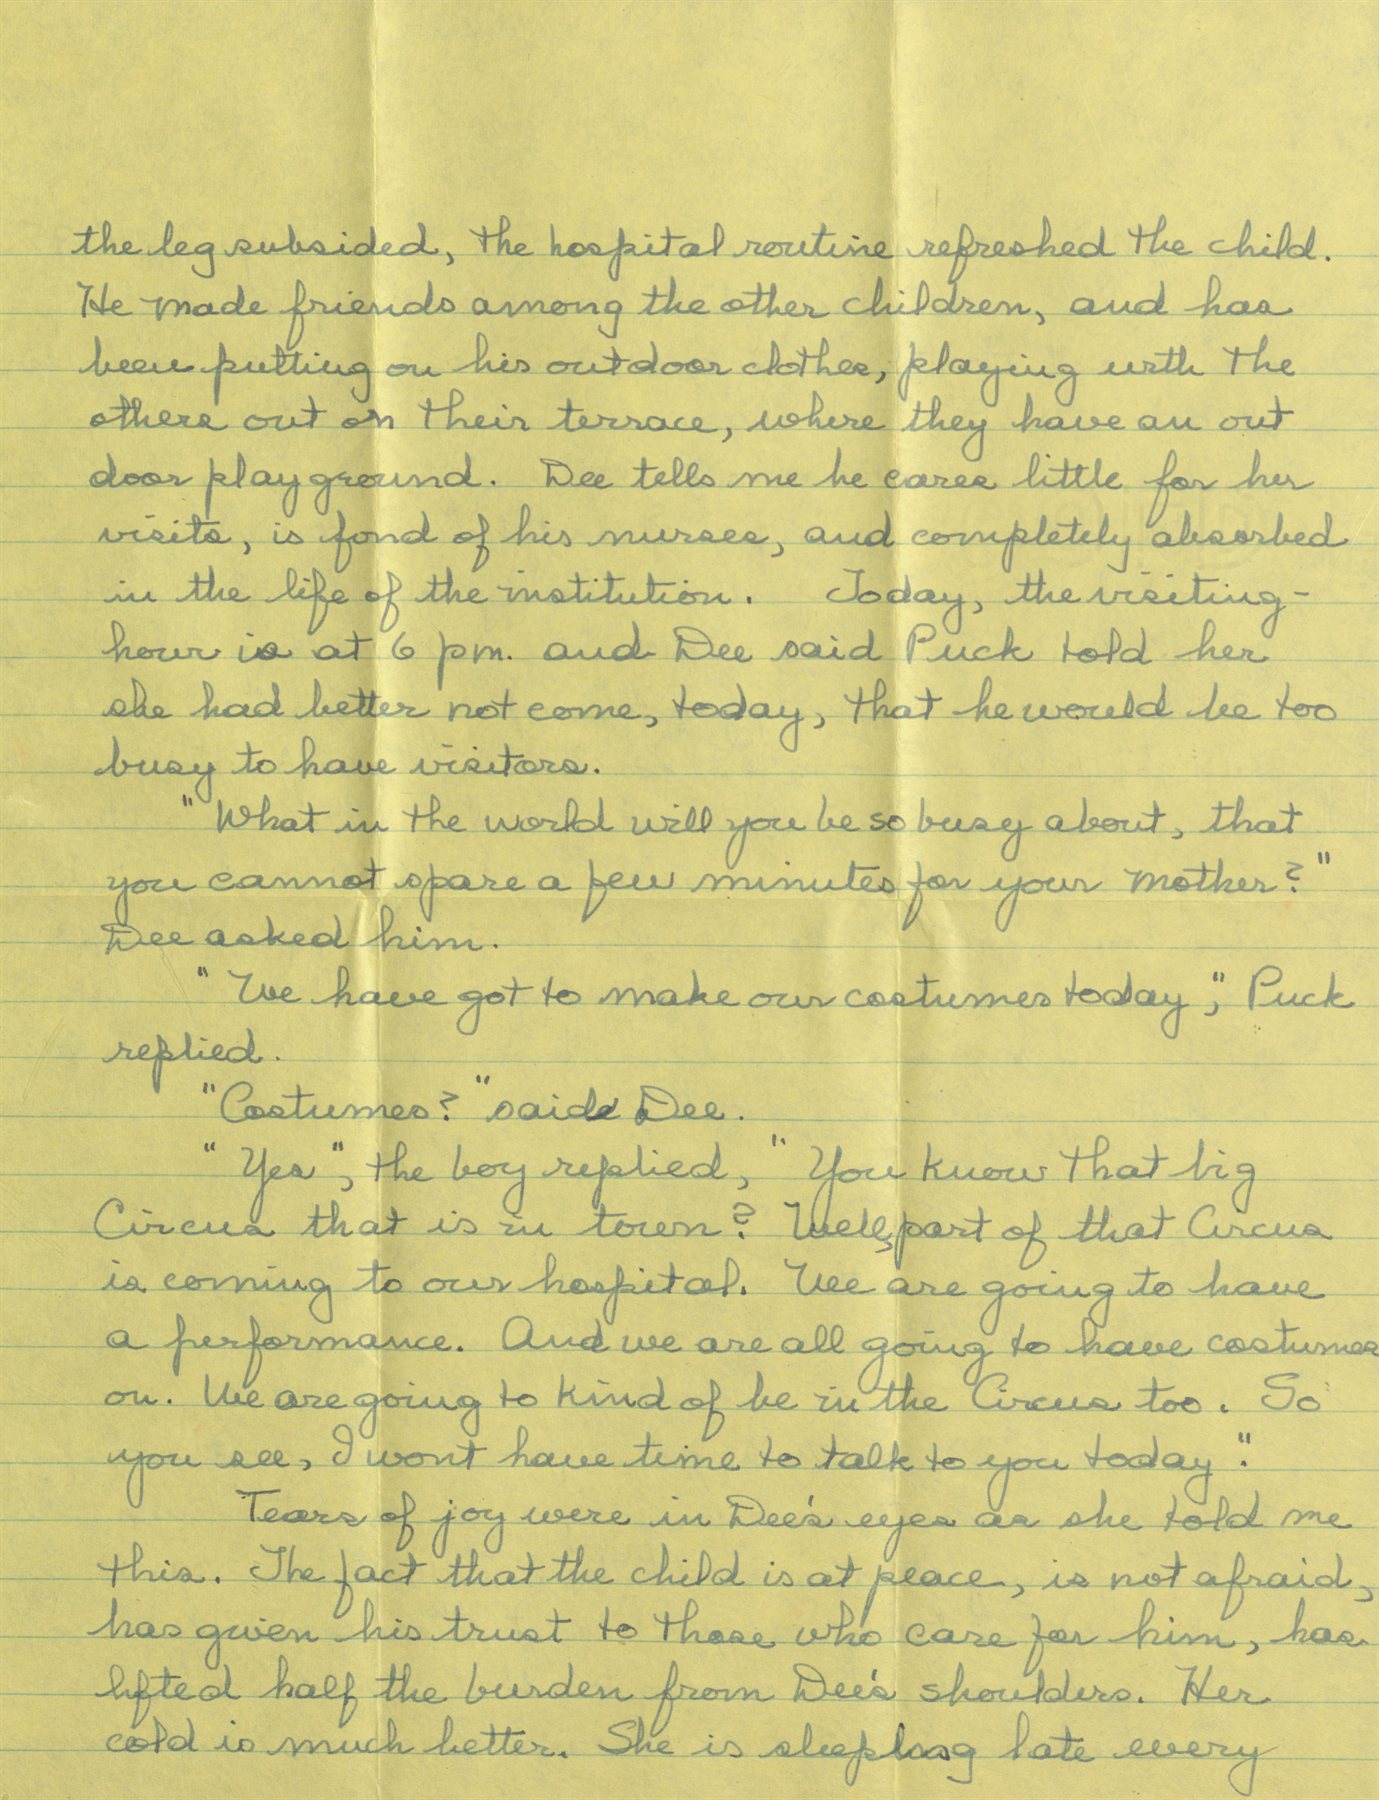 the leg subsided, the hospital routine refreshed the child.
He made friends among the other children, and has
been putting on his outdoor clothes, playing with the
others out on their terrace, where they have an out
door playground. Dee tells me he cares little for her
visits, is fond of his nurses, and completely absorbed
in the life of the institution. Today, the visiting-
hour is at 6 pm. and Dee said Puck told her
she had better not come, today, that he would be too
busy to have visitors.
"What in the world will you be so busy about, that
you cannot spare a few minutes for your mother?"
Dee asked him.
"We have got to make our costumes today", Puck
replied.
"Costumes?" said Dee.
"Yes", the boy replied, "You know that big
Circus that is in town? Well, part of that Circus
is coming to our hospital. We are going to have
a performance. And we are all going to have costumes
on. We are going to kind of be in the Circus too. So
you see, I wont have time to talk to you today".
Tears of joy were in Dee's eyes as she told me
this. The fact that the child is at peace, is not afraid,
has given his trust to those who care for him, has
lifted half the burden from Dee's shoulders. Her
cold is much better. She is sleeping late every